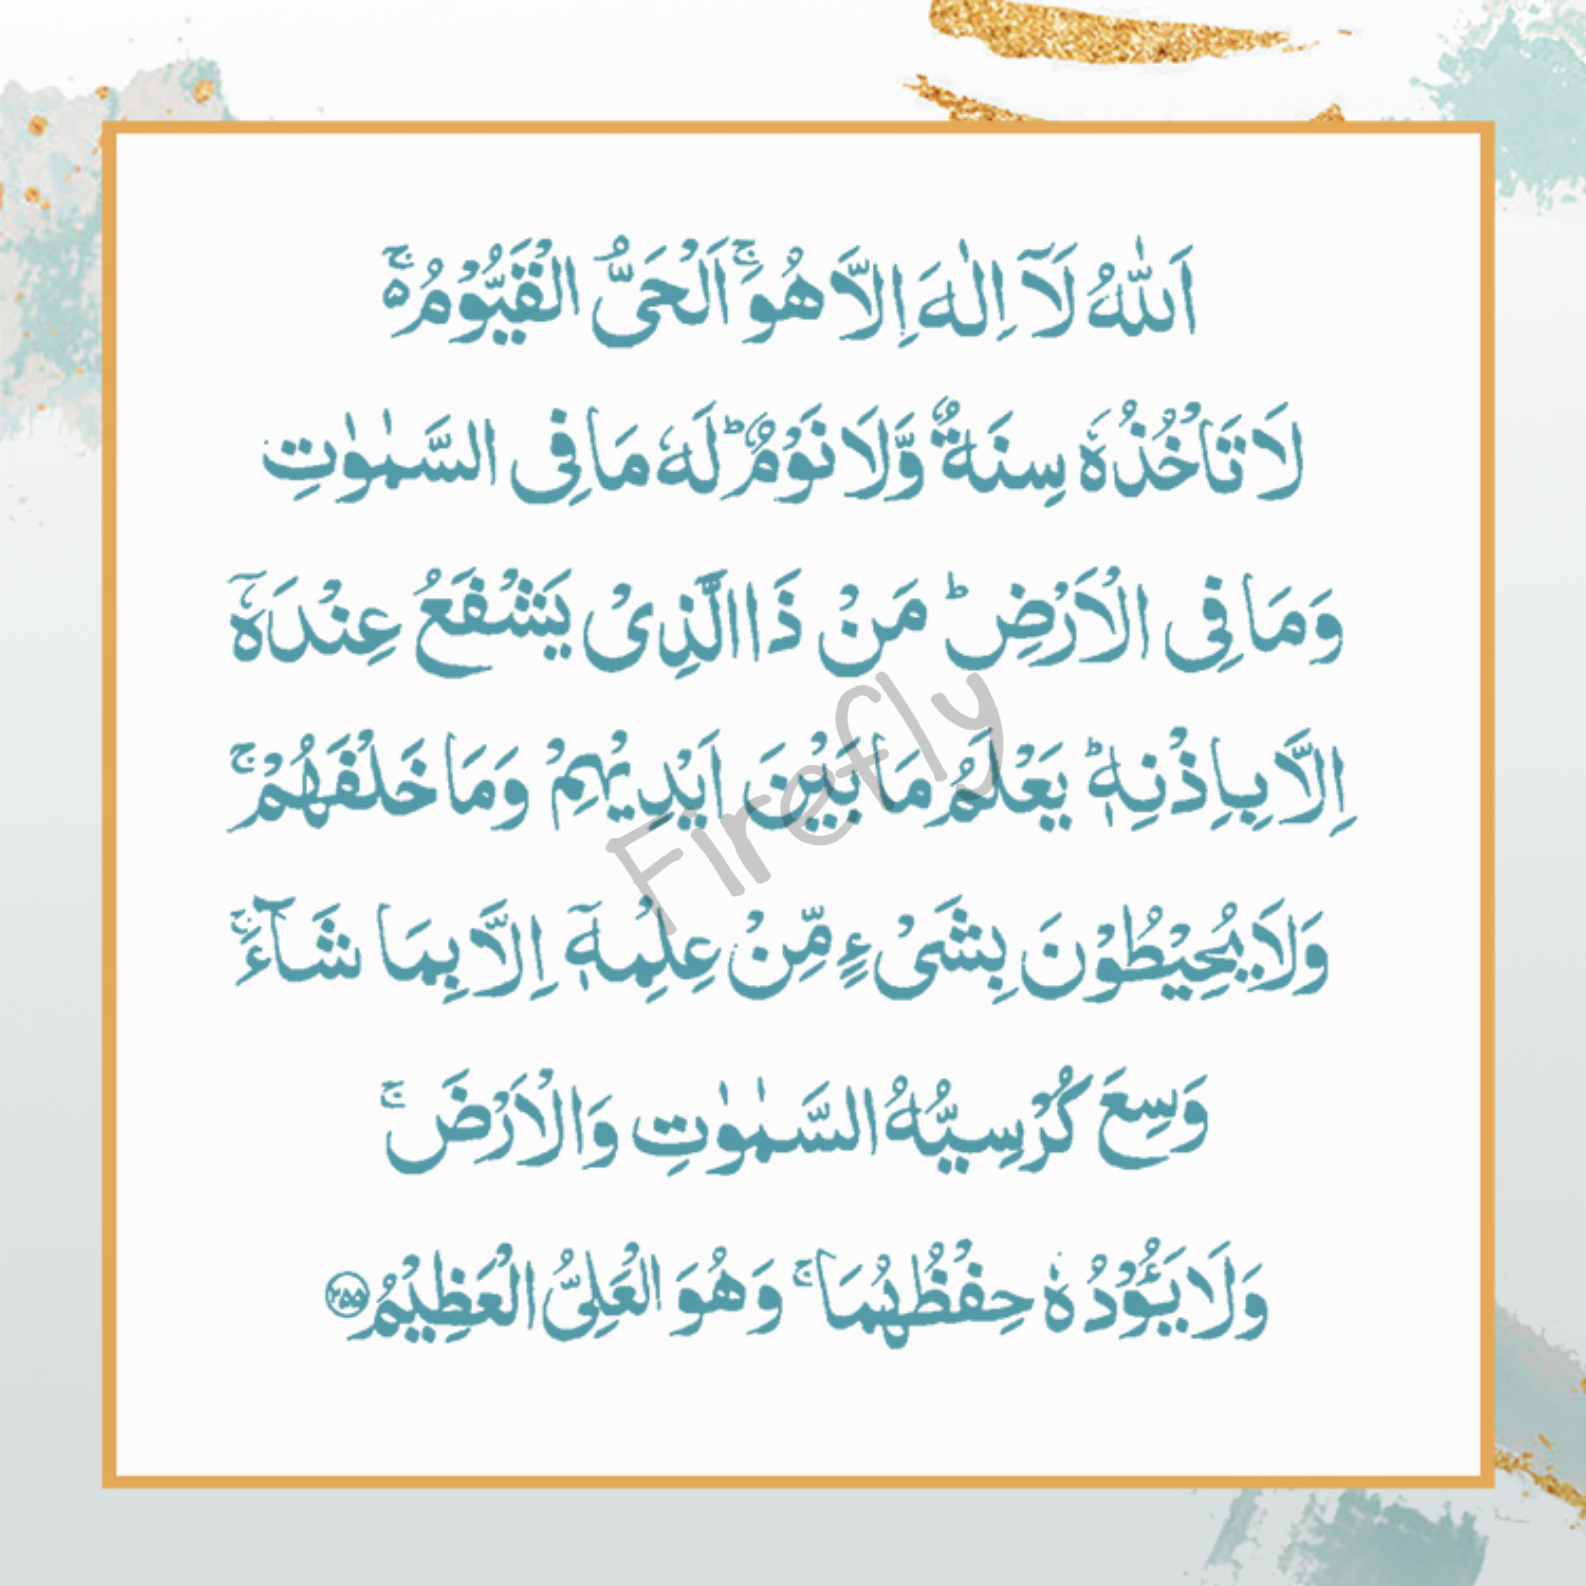 اَللّٰهُ لَاۤ اِلٰهَ اِلَّا هُوَۚ اَلْحَیُّ الْقَیُّوْمُ ەۚ
لَا تَاْخُذُهٗ سِنَةٌ وَّلَا نَوْمٌؕ لَهٗ مَا فِی السَّمٰوٰتِ
وَمَا فِی الْاَرْضِؕ مَنْ ذَا الَّذِیْ یَشْفَعُ عِنْدَهٗۤ
اِلَّا بِاِذْنِهٖؕ یَعْلَمُ مَا بَیْنَ اَیْدِیْهِمْ وَمَا خَلْفَهُمْۚ
وَلَا یُحِیْطُوْنَ بِشَیْءٍ مِّنْ عِلْمِهٖۤ اِلَّا بِمَا شَآءَۚ
وَسِعَ كُرْسِیُّهُ السَّمٰوٰتِ وَالْاَرْضَۚ
وَلَا یَـُٔوْدُهٗ حِفْظُهُمَاۚ وَهُوَ الْعَلِیُّ الْعَظِیْمُ ۲۵۵
Firefly